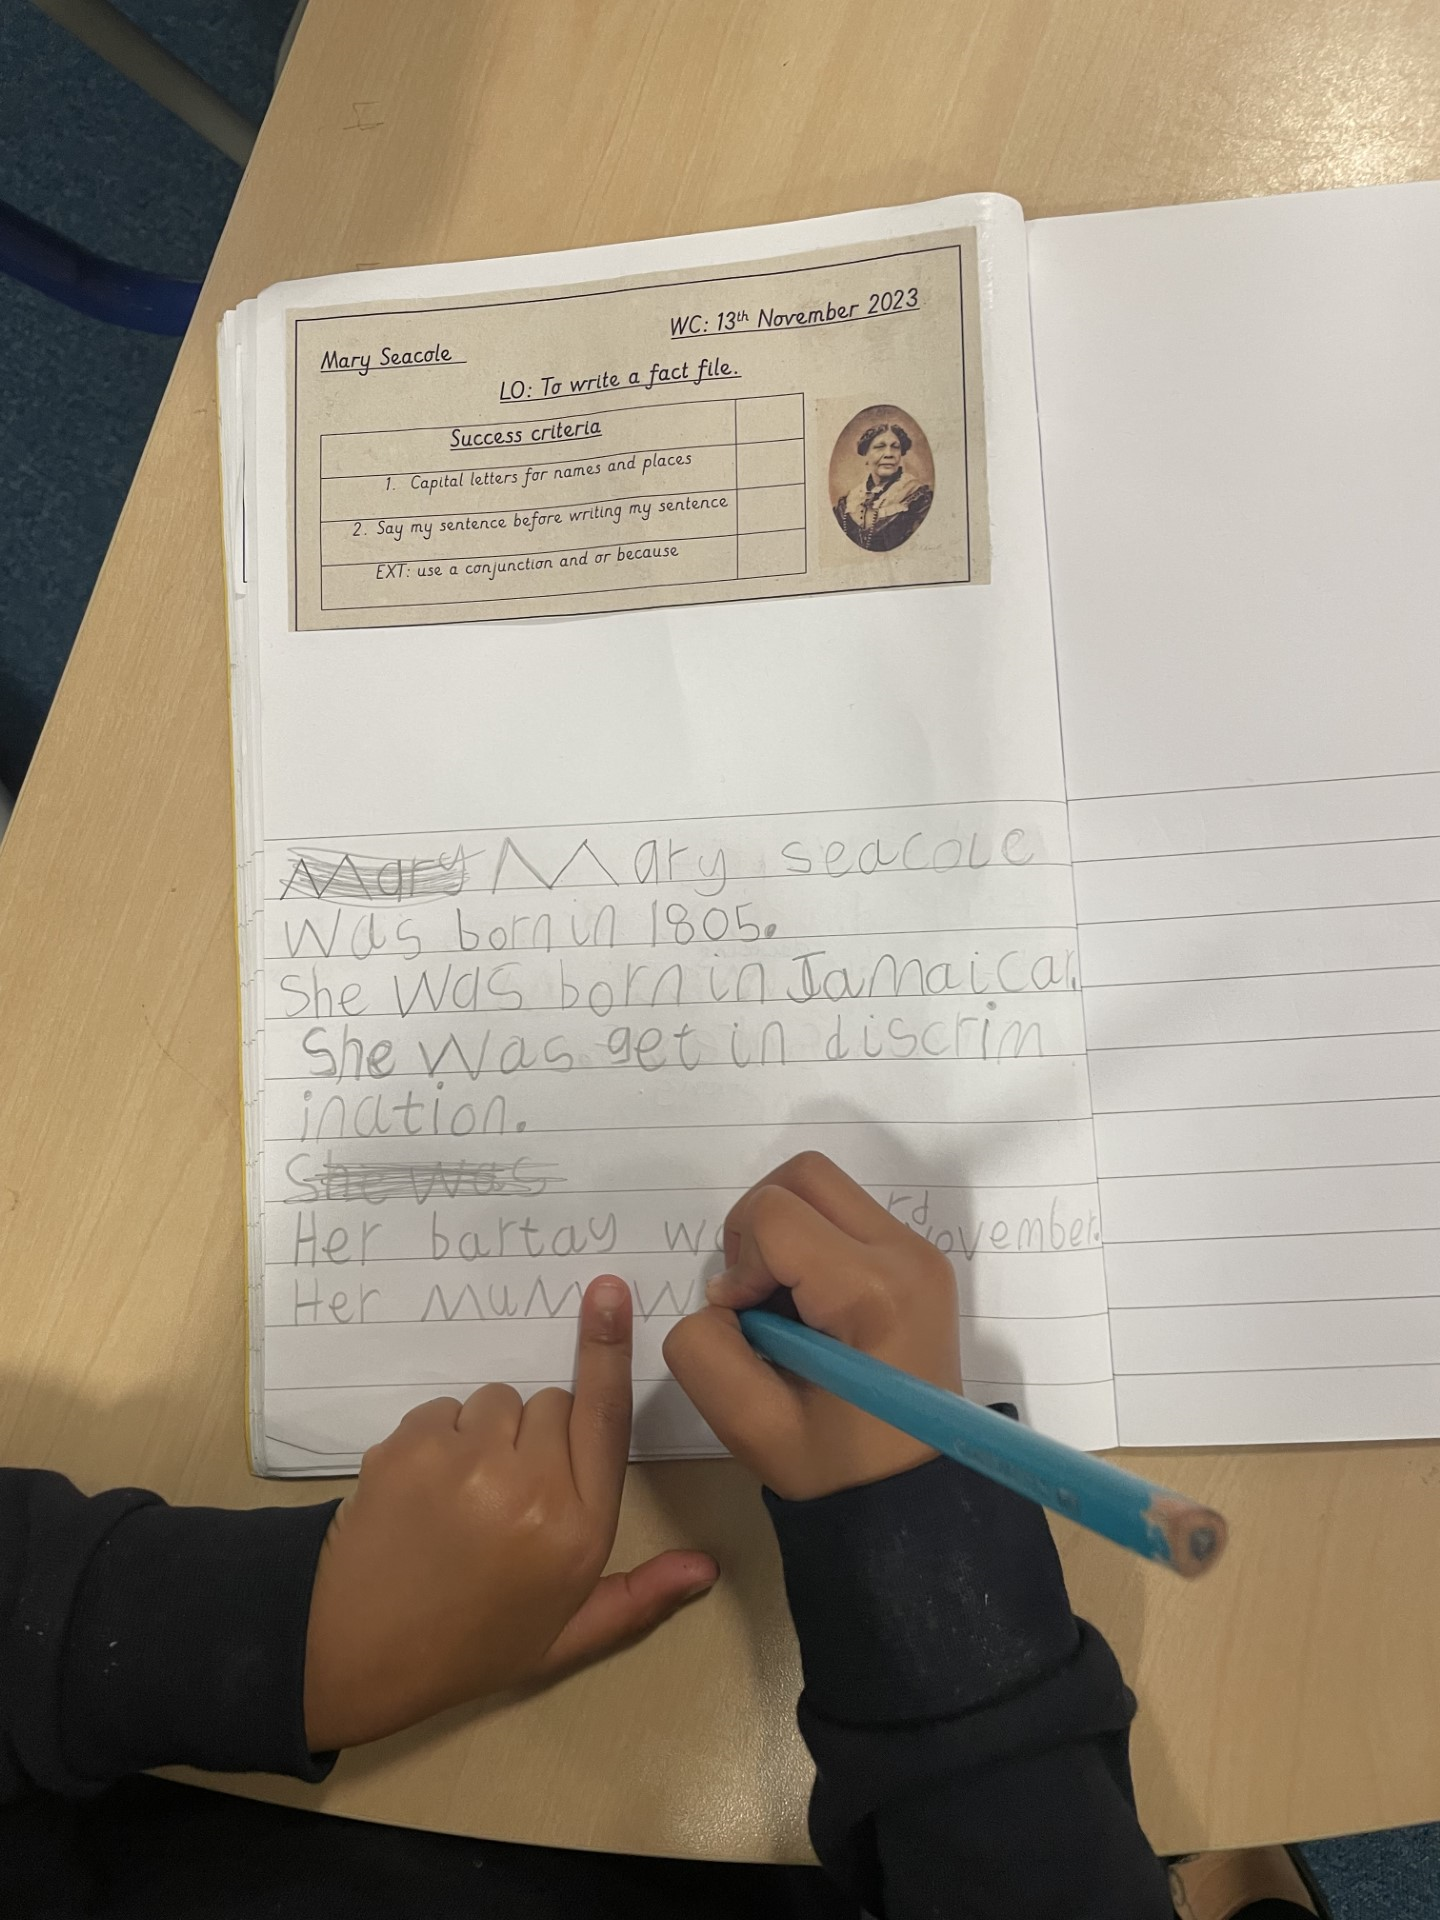 Mary Seacole
WC: 13th November 2023
LO: To write a fact file.
Success criteria
1. Capital letters for names and places
2. Say my sentence before writing my sentence
EXT: use a conjunction and or because
Mary Mary seacole
Was born in 1805.
She Was born in Jamaicar.
She Was get in discrim
ination.
She was
Her bartay rd November.
Her Mum